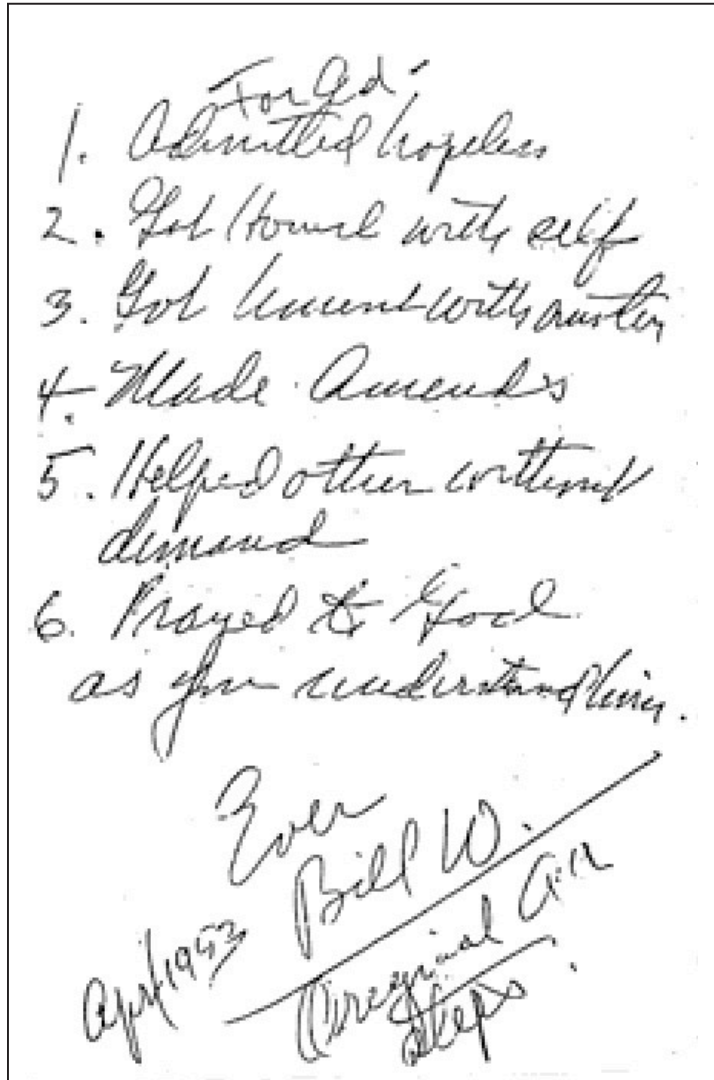 For Ed -
1. Admitted hopeless
2. Got Honest with self
3. Got honest with another
4. Made Amends
5. Helped other without
demand
6. Prayed to God
as you understand him.
Ever
Bill W.
April 1953
Original AA
Steps